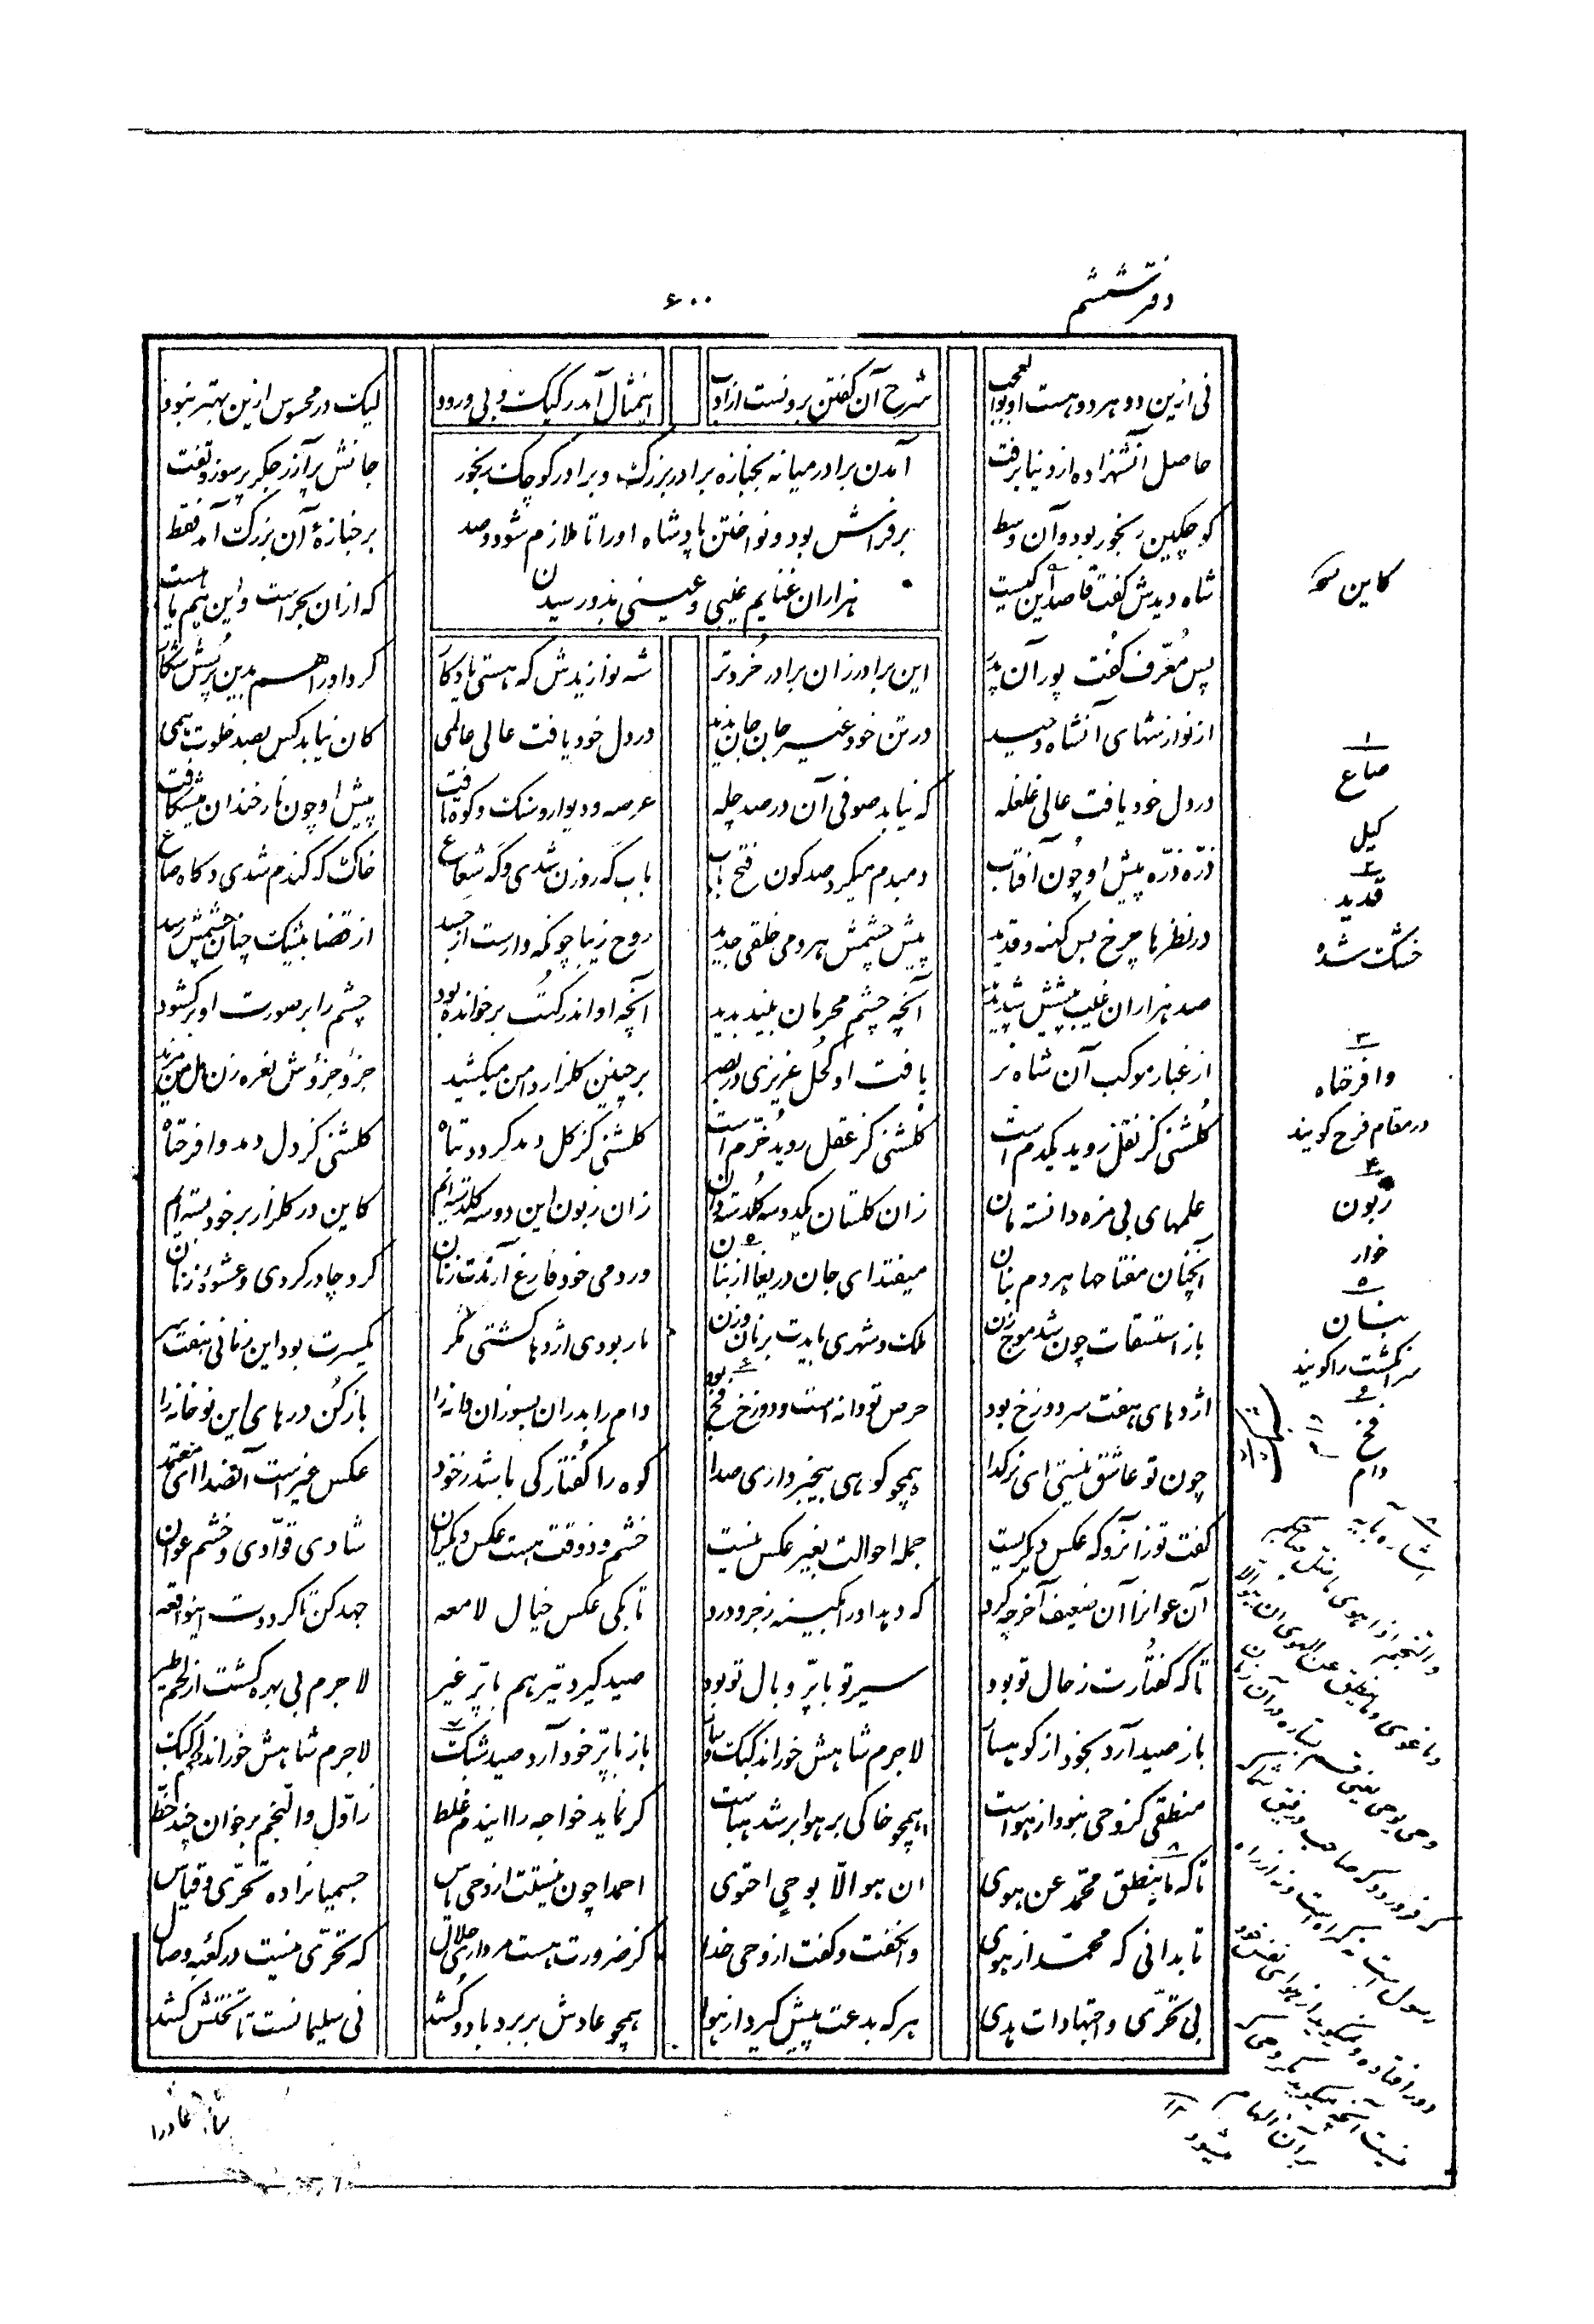 دفتر ششم
۶۰۰
نی ازین دو هر دو هست او بوالعجب شرح آن گفتن برونست از ادب اینمثال آمد رکیک و بی ورود لیک در محسوس ازین بهتر نبود
آمدن برادر میانه بجنازه برادر بزرگ و برادر کوچک رنجور
بر فراش بود و نواختن پادشاه او را تا ملازم شود و صد
هزاران غنایم غیبی و عینی بدو رسیدن
حاصل آنشهزاده از دنیا برفت جانش پر آزر جگر پر سوز و تفت
کوچکین رنجور بود و آن وسط بر جنازهٔ آن بزرگ آمد فقط
شاه دیدش گفت قاصد این کیست که ازان بحر است و این هم ماهیست
پس معرف گفت پور آن پدر این برادر زان برادر خردتر شه نوازیدش که هستی یادگار کرد او را هم بدین پرسش شکار
از نوازشهای آنشاه وحید در تن خود غیر جان جان بدید در دل خود یافت عالی عالمی کان نیابد کس بصد خلوت همی
در دل خود یافت عالی غلغله که نیابد صوفی آن در صد چله عرصه و دیوار و سنگ و کوه یافت پیش او چون نار خندان میشکافت
ذره ذره پیش او چون آفتاب دمبدم میکرد صد گون فتح باب باب گه روزن شدی و گه شعاع خاک گه گندم شدی و گاه صاع
در نظرها چرخ بس کهنه و قدید پیش چشمش هر دمی خلقی جدید روح زیبا چونکه وارست از جسد از قضا بیشک چنان چشمش رسد
صد هزاران غیب پیشش شد پدید آنچه چشم محرمان بیند بدید آنچه او اندر کتب برخوانده بود چشم را بر صورت او برگشود
از غبار موکب آن شاه نر یافت او کحل عزیزی در بصر بر چنین گلزار دامن میکشید جزو جزوش نعره زن هل من مزید
گلشنی کز نقل روید یکدمست گلشنی کز عقل روید خرم است گلشنی کز گل دمد گردد تباه گلشنی کز دل دمد وافرحتاه
علمهای بی مزه دانسته مان زان گلستان یکدو سه گلدسته دان زان زبون این دو سه گلدسته ایم کاین در گلزار بر خود بسته ایم
آنچنان مفتاحها هر دم بنان میفتد ای جان دریغا از بنان ور دمی خود فارغ آرندت زنان گرد چادر گردی و عشوهٔ زنان
باز استسقات چون شد موج زن ملک و شهری بایدت پر نان و زن مار بودی اژدها گشتی مگر یکسرت بود این زمانی هفت سر
اژدهای هفت سر دوزخ بود حرص تو دانه است و دوزخ فخ بود دام را بدران بسوزان دانه را باز کن درهای این نو خانه را
چون تو عاشق نیستی ای نر گدا همچو کوهی بیخبر داری صدا کوه را گفتار کی باشد ز خود عکس غیر است آنصدا ای معتمد
گفت تو زانرو که عکس دیگریست جمله احوالت بغیر عکس نیست خشم و ذوقت هست عکس دیگران شادی قوادی و خشم عوان
آن عوانرا آن ضعیف آخر چه کرد که دهد او را بکینه زجر و درد تا بکی عکس خیال لامعه جهد کن تا گرددت اینواقعه
تا که گفتارت ز حال تو بود سیر تو با پر و بال تو بود صید گیرد تیر هم با پر غیر لا جرم بی بهره گشت از لحم طیر
باز صید آرد بخود از کوهسار لا جرم شاهش خوراند کبک و سار باز با پر خود آرد صید شبک لا جرم شاهش خوراند لحم کبک
منطقی کز وحی نبود از هواست همچو خاکی بر هوا بر شد هباست گر نماید خواجه را ایندم غلط ز اول والنجم بر خوان چند خط
تا که ما ینطق محمد عن هوی ان هو الا بوحی احتوی احمدا چون نیستت از وحی یاس جسمیانرا ده تحری و قیاس
تا بدانی که محمد از هوی وانگفت و گفت از وحی خدا کز ضرورت هست مرداری حلال که تحری نیست در کعبه وصال
بی تحری و اجتهادات هدی هر که بدعت پیش گیرد از هوا همچو عادش بر برد باد و کشد نی سلیمانست تا تختش کشد
کاین
۱
صاع
کیل
۲
قدید
خشک شده
۳
وافرحتاه
در مقام فرح گویند
۴
زبون
خوار
۵
بنان
سر انگشت را گویند
۶
فخ
دام